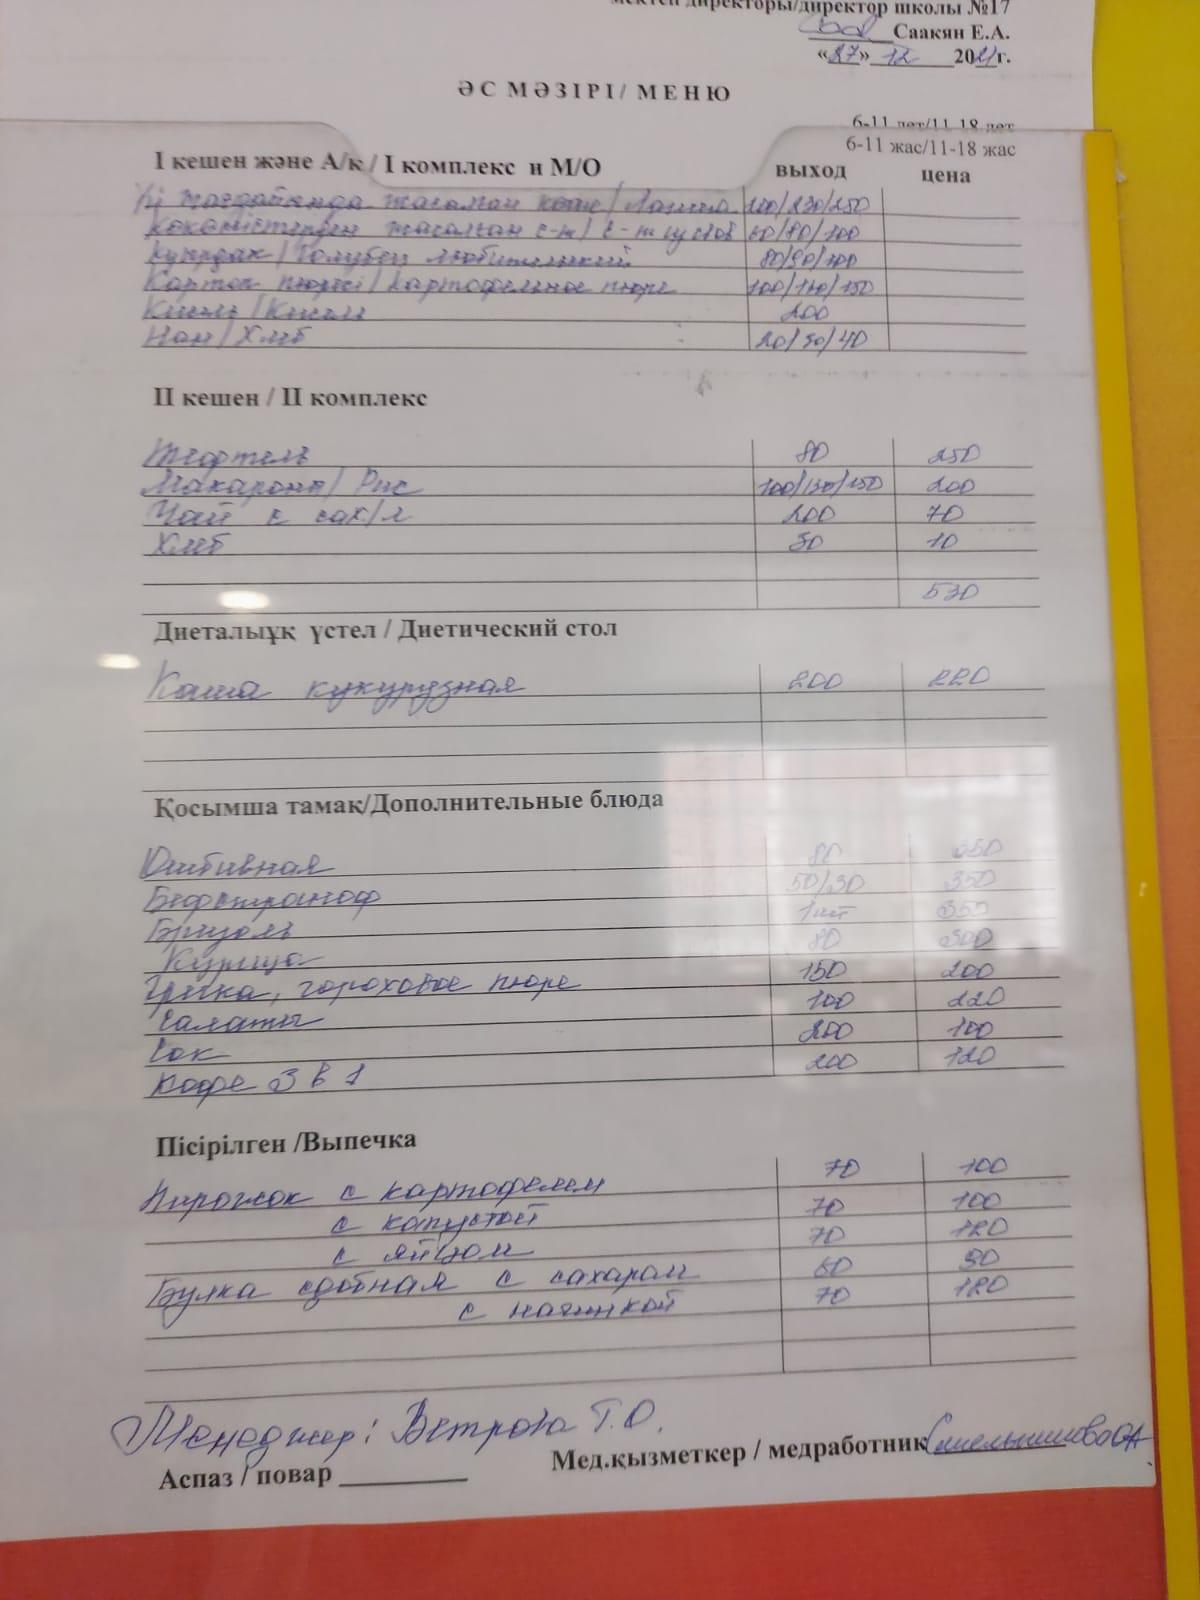 мектеп директоры/директор школы №17
Саакян Е.А.
«27» 12 2021г.
ӘС МӘЗІРІ/ МЕНЮ
6-11 лет/11-18 лет
6-11 жас/11-18 жас
І кешен және А/к / І комплекс и М/О выход цена
жасалған көже / Лапша 200/230/250
Көкөністерден жасалған с-т / с-т 60/80/100
Қуырдақ / Голубец любительский 80/90/100
Картоп пюресі / Картофельное пюре 100/130/150
Кисель / Кисель 200
Нан / Хлеб 20/30/40
ІІ кешен / ІІ комплекс
Тефтель 80 250
Макароны/ Рис 100/130/150 200
Чай с сах/м 200 70
Хлеб 30 10
530
Диеталыұқ үстел / Диетический стол
Каша кукурузная 200 220
Қосымша тамақ/Дополнительные блюда
Отбивная 80 350
Бефстроганоф 50/30 350
Бризоль 1шт 350
Курица 80 300
Гречка, гороховое пюре 150 200
Салаты 100 220
Сок 200 100
Кофе 3 в 1 200 120
Пісірілген /Выпечка
Пирожок с картофелем 70 100
с капустой 70 100
с яйцом 70 120
Булка сдобная с сахаром 60 90
с начинкой 70 120
Менеджер: Ветрова Т.О.
Мед.қызметкер / медработник
Аспаз / повар